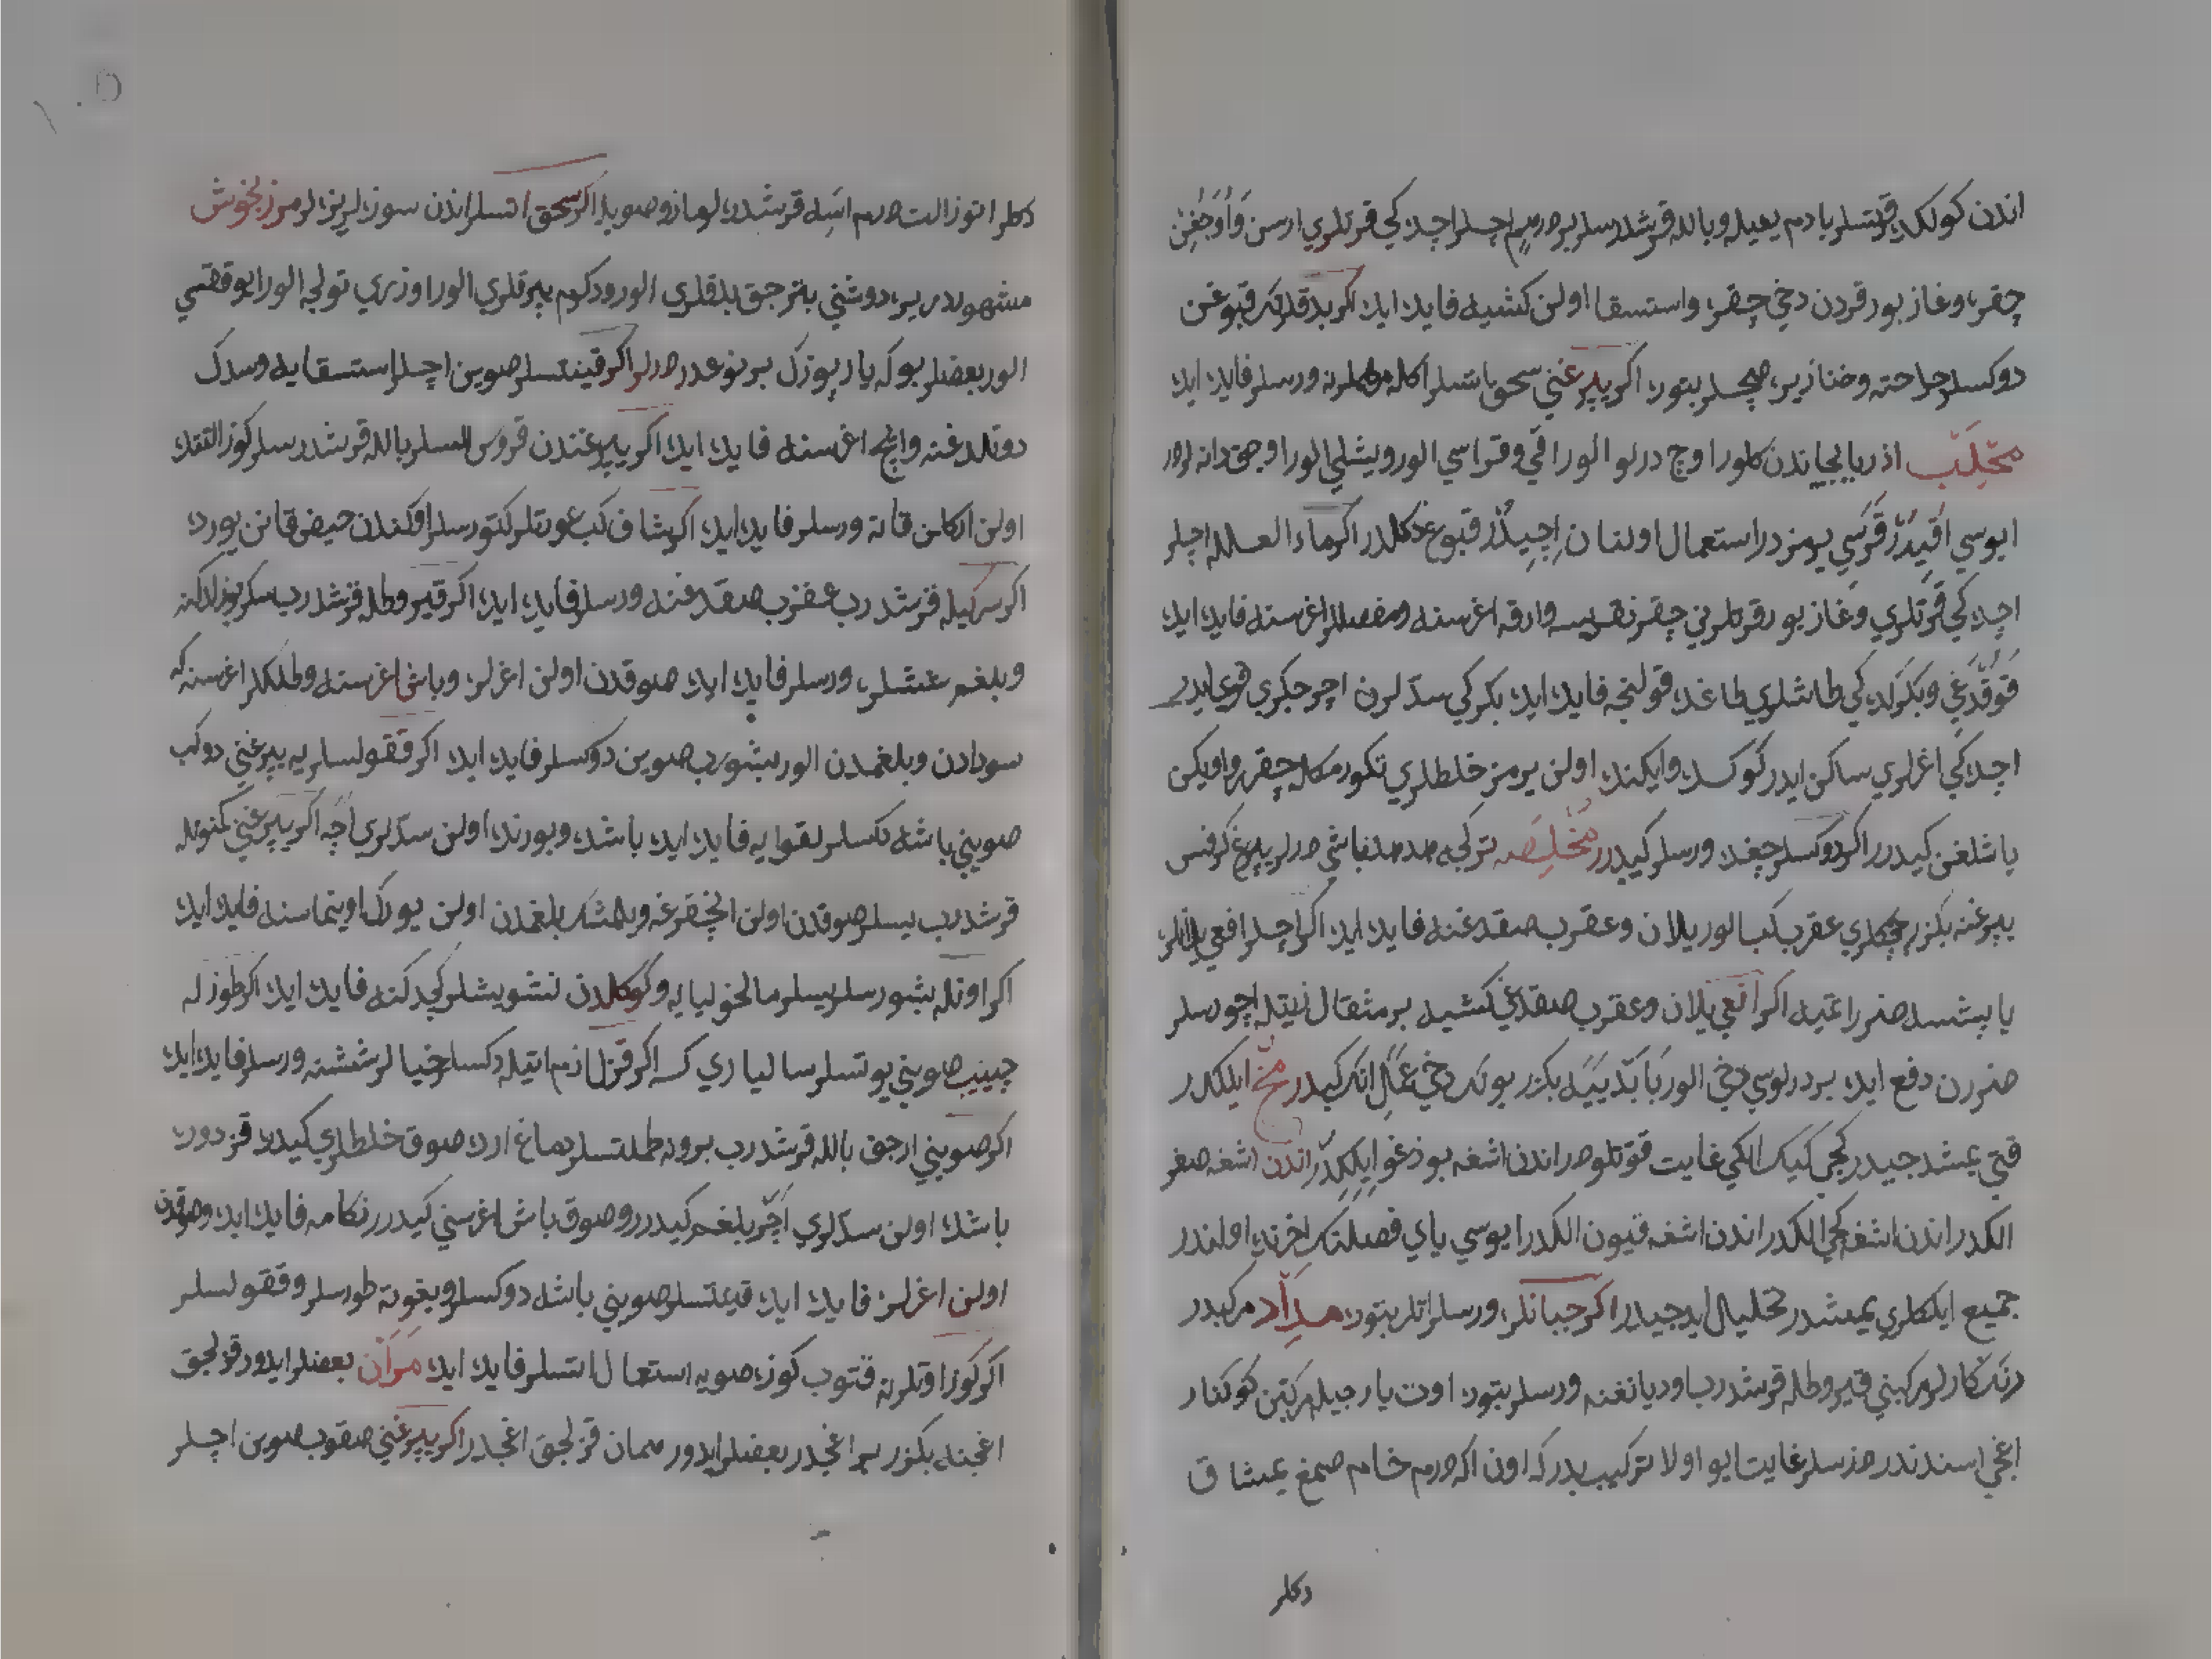 اندن كولكده قرتسلر بادم يغيله وباللە قرشدرسلر بر درهم اچسلر اچده كي قرتلري ارسن واوجغن
چقره وغاز بورقردن دخي چقره واستسقا اولن كشيه فايده ايده اكر بدقلرنك قبوغن
دوكسلر جراحته وخنازيره صچسلر بتوره اكر يپرغني سحق اتسلر اكله ورسلر فايده ايده
محلب اذربايجاندن كلور اوج درلو الور اقي وقراسي الور ويشلي الور اوجق دانه لردر
ايوسي اقيدر قرسي يرمزدر استعمال اولنان اچيدر قبوغ دكلدر اكر ماء العسلله اچلر
اچده كي قرتلري وغاز بورقرتلرني چقر نقريسه وارقه اغرسنه ومفصللر اغرسنه فايده ايده
قوقدغي وبكركده كي طاشلري طاغده قولنجه فايده ايده بكركي سدلرن اچر جكري قوي ايدر
اچده كي اغرلري ساكن ايدر كوكسده وايكنده اولن يرمز خلطلري تكورمكله چقرر واويكن
باشلغن كيدرر اكر دوكسلر جغده ورسلر كيدرر مخلصه تركجه صدصلفاشي درلر يپرغ كرفس
يپرغنه بكزر چچكلري عقرب كب الور يلان وعقرب صقدغنه فايده ايده اكر اچسلر افعي يلانلر
يابشسه ضرر اتميه اكر افعي يلان وعقرب صقدغي كشيه بر مثقال زيتله اچورسلر
ضررن دفع ايده بر درلوسي دخي الور بابديه بكزر بونك دخي عملي انك كبيدر مخ ايلكدر
قتي يمشد جيدر كجي كيك الكي غايت قوتلودر اندن اشغه بوزغو ايلكدر اندن اشغه صغر
الكدر اندن اشغه كجي الكدر اندن اشغه قيون الكدر ايوسي ياي فصلنك اخرنده اولندر
جميع ايلكلري يمشدر تحليل ايدجيدر اكر جبانلره ورسلر اتلر بتوره مداد مركبدر
درنك كارلو مركبني قيروطله قرشدرب اوديانغنه ورسلر بتوره اوت يارجيله مركبن كوكنار
اغجي اسندندر دزسلر غايت ايو اولا تركيب بدر كه اون اكي درم خام صمغ يمشاق
دكلر
دكلر اتوز الت درم اسله قرشدره لومازو صويله اكر سحق اتسلر اندن سوزلر يزه لر مرزنخوش
مشهولدر يره دوشني بنز جق بدقلري الور ودكرم يپرقلري الور اوزري تولجه الور ايو قوقسي
الور بعضلر بوكه ياربوزك بر نوعدر درلر اكر قينتسلر صوين اچسلر استسقايه وسدك
دوتلدغنه وانجه اغرسنه فايده ايده اكر يپرغندن قروس السلر باللە قرشدرسلر كوز التنده
اولن اركلن قانه ورسلر فايده ايده اكر شاف كب عورتلر كتورسلر اوكندن حيض قانن يوردر
اكر سركيله قرشدرب عقرب صقدغنه ورسلر فايده ايده اكر قيروطله قرشدرب سكربوزلدكنه
وبلغم ششلره ورسلر فايده ايده صوقدن اولن اغرلره وباش اغرسنه وطلكلر اغرسنه كه
سودادن وبلغمدن الور پشورب صوين دوكسلر فايده ايده اكر قوقولسلر يه يپرغني دوكب
صويني باشه دكسلر لقوايه فايده ايده باشده وبورنده اولن سدلري اچه اكر يپرغني كنوتله
قرشدرب يسلر صوقدن اولن انچقرغه ويمشك بلغمدن اولن يورك اوينماسنه فايده ايده
اكر اوتله بشورسلر يسلر مالخوليايه وكوكلدن تشويشلر كيدكنه فايده ايده اكر طوزله
چينيب صويني يوتسلر ساليارى كسه اكر قزل ازم اتيله دكسلر خيالر ششنه ورسلر فايده ايده
اكر صويني ارجق باللە قرشدرب برونه طملتسلر دماغ ارده صوق خلطلري كيدره قزدوره
باشده اولن سدلري اچر بلغم كيدرر وصوق باش اغرسني كيدرر زكامه فايده ايده وصوقدن
اولن اغرلره فايده ايده قينتسلر صويني باشه دوكسلر وبغونه طورسلر وقوقولسلر
اكر كوز اوتلرنه قتوب كوزه صويه استعمال اتسلر فايده ايده مران بعضلر ايدور قزلجق
اغجنه بكزر بر اغجدر بعضلر ايدور همان قزلجق اغجدر اكر يپرغني صقوب صوين اچسلر